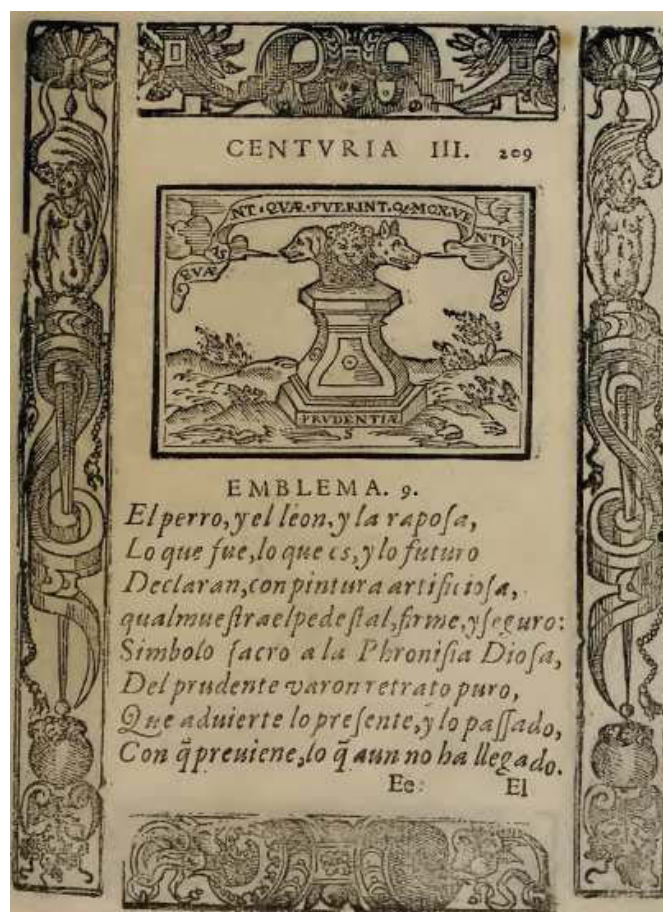 CENTVRIA III. 209
QVÆ·SVNT·QVÆ·FVERINT·Q·MOX·VENTVRA
PRVDENTIÆ
S
EMBLEMA. 9.
El perro, y el leon, y la raposa,
Lo que fue, lo que es, y lo futuro
Declaran, con pintura artificiosa,
qual muestra el pedestal, firme, y seguro:
Simbolo sacro a la Phronisia Diosa,
Del prudente varon retrato puro,
Que aduierte lo presente, y lo passado,
Con q̃ preuiene, lo q̃ aun no ha llegado.
Ee El